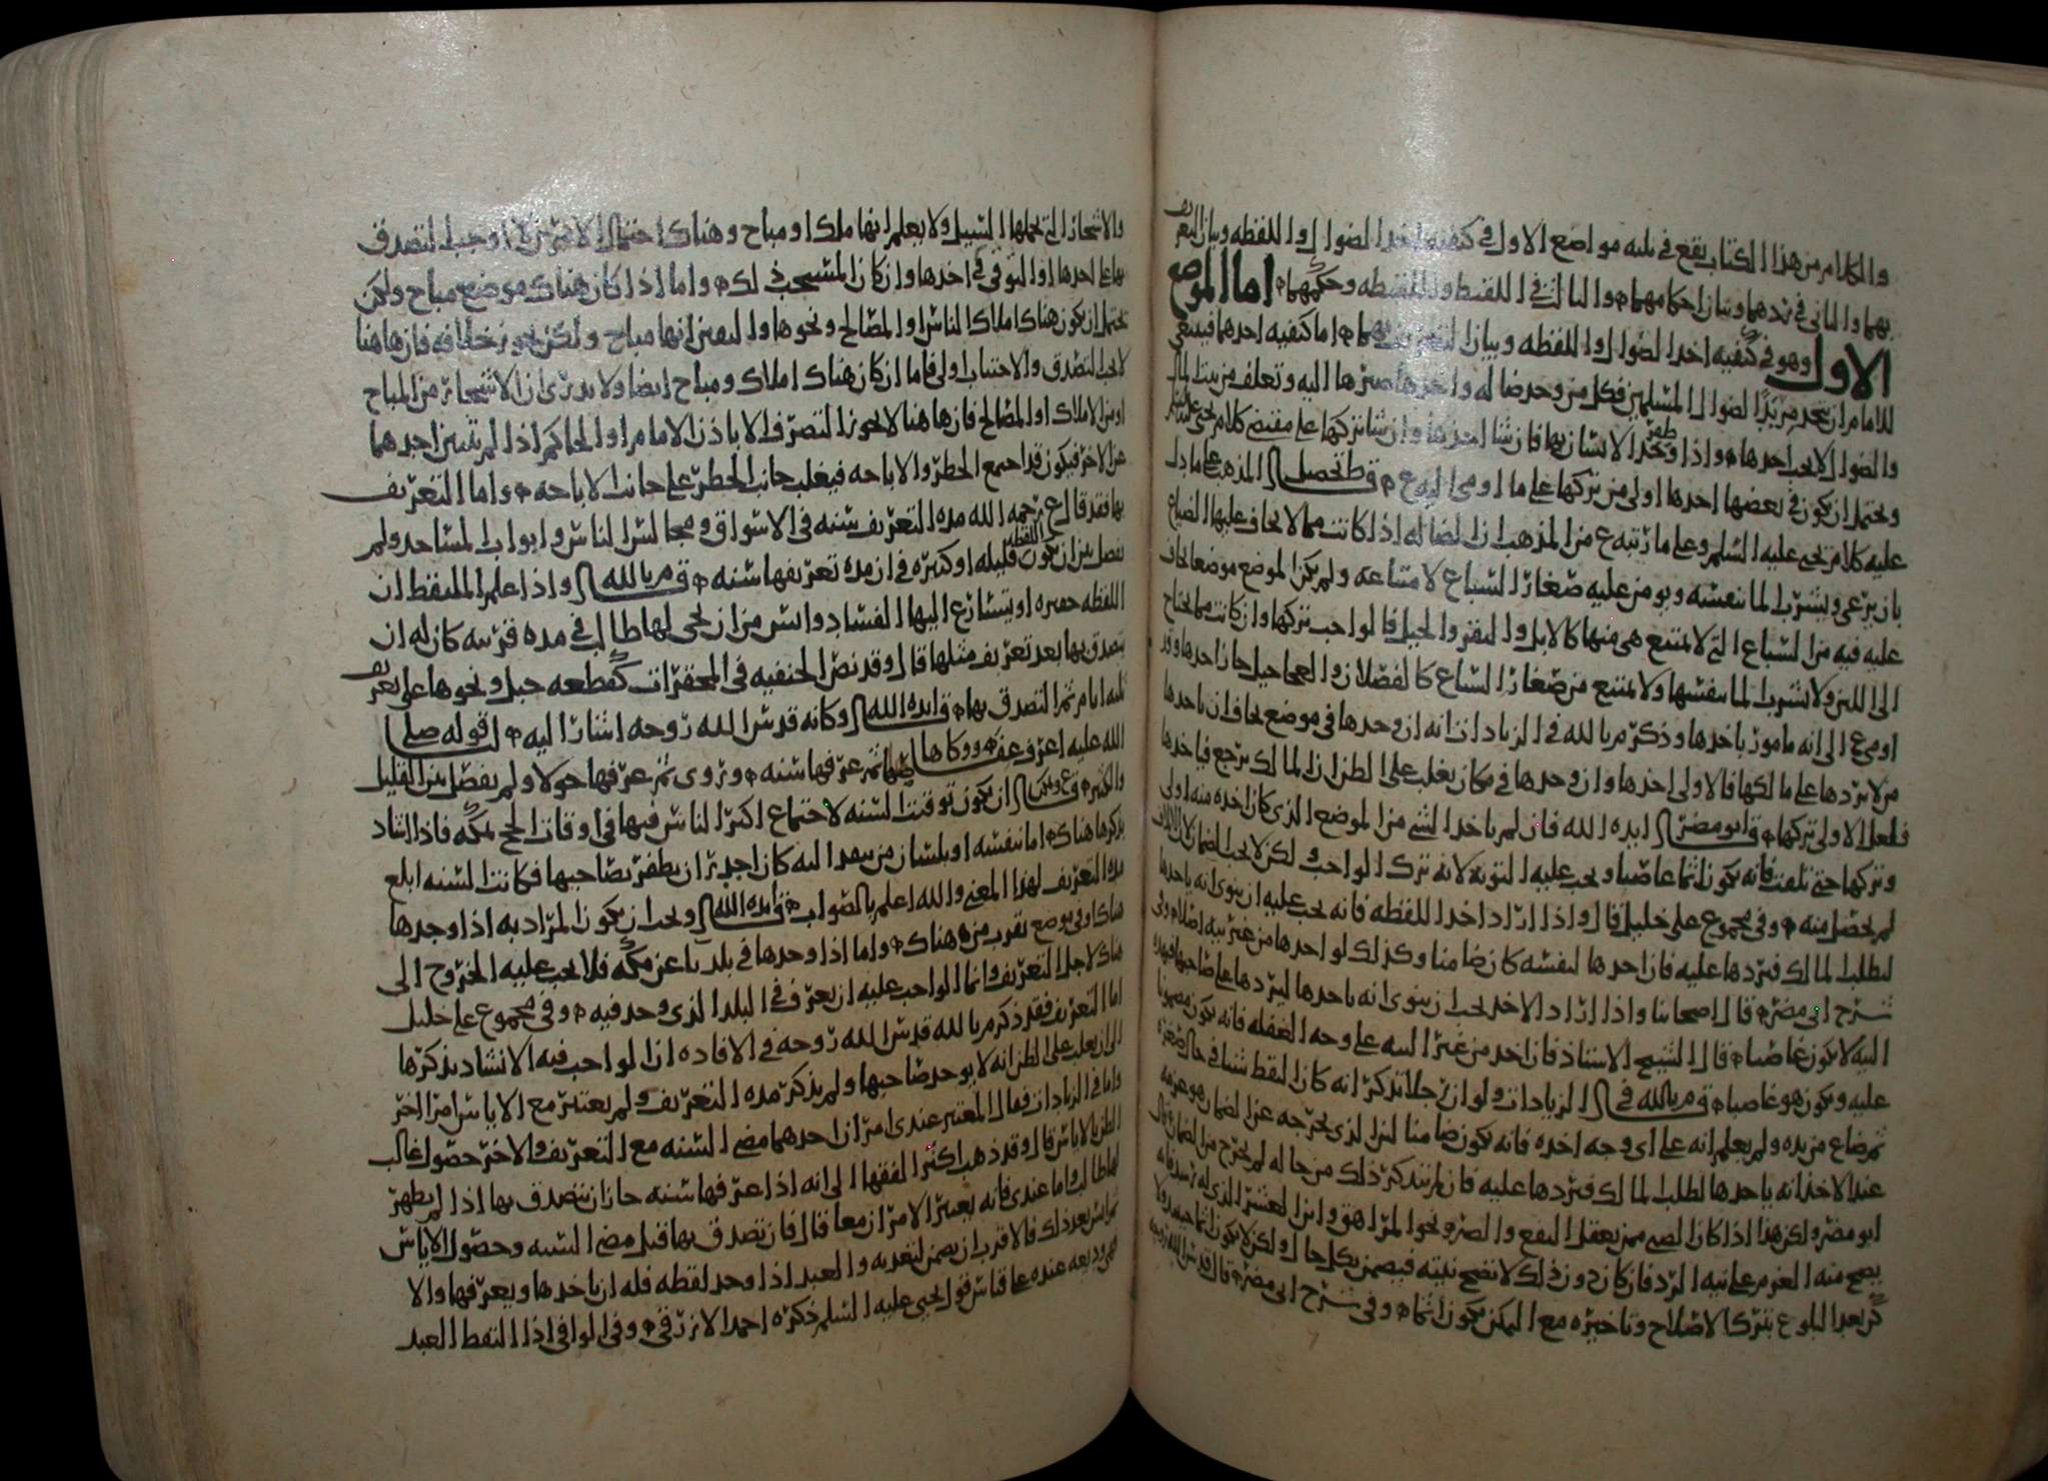 والكلام من هذا الكتاب يقع في ثلثه مواضع الاول في كيفية اخد الضوال واللقطه وبيان التعريف
بهما والثاني في ردهما وبيان احكامهما والثالث في اللقيط واللقيطه وحكمهما اما الموضع
الاول وهو في كيفيه اخد الضوال واللقطه وبيان التعريف بهما اما كيفيه اخدهما فينبغي
للامام ان يتخد مربدا لضوال المسلمين فكل من وجد ضاله واخدها صيرها اليه وتعلف من بيت المال
والضوال لا يجب اخدها واذا ظفر الانسان بها فان شا اخدها وان شا تركها على مقتضى كلام يحيى عليه السلام
ويحتمل ان يكون في بعضها اخدها اولى من تركها على ما اومى اليه ع ق ط تحصيل المذهب على ما دل
عليه كلام يحيى عليه السلم وعلى ما رتبه ع من المذهب ان الضاله اذا كانت مما لا يخاف عليها الضياع
بان يرعى ويشرب الما بنفسه ويومن عليه صغار السباع لامتناعه ولم يكن الموضع موضعا يخاف
عليه فيه من السباع التي لا يمتنع هي منها كالابل والبقر والخيل فالواجب تركها وان كانت مما يحتاج
الى اللبن ولا تشرب الما بنفسها ولا يمتنع من صغار السباع كالفصلان والعجاجيل جاز اخدها وقد
اومى ع الى انه مامور باخدها وذكر م بالله في الزيادات انه ان وجدها في موضع يخاف ان ياخدها
من لا يردها على مالكها فالاولى اخدها وان وجدها في مكان يغلب على الظن ان المالك يرجع فياخدها
فلعل الاولى تركها ق ابو مضر ايده الله فان لم ياخد الشي من الموضع الذي كان اخده منه اولى
وتركها حتى تلفت فانه يكون اثما عاصيا ويجب عليه التوبة لانه ترك الواجب ولكن لا يجب الضمان لان التلف
لم يحصل منه وفي مجموع علي خليل قال واذا اراد اخد اللقطه فانه يجب عليه ان ينوي انه ياخدها
لطلب المالك فيردها عليه فان اخدها لنفسه كان ضامنا وكذلك لو اخدها من غير نيه اصلا وفي
شرح ابي مضر قال اصحابنا واذا اراد الاخد يجب ان ينوي انه ياخدها ليردها على صاحبها فبهذه
النيه لا يكون غاصبا قال الشيخ الاستاذ فان اخد من غير النيه على وجه الغفله فانه يكون مضمونا
عليه ويكون هو غاصبا ق م بالله في الزيادات ولو ان رجلا تذكر انه كان لقط شيئا في حال صغره
ثم ضاع من يده ولم يعلم انه على اي وجه اخده فانه يكون ضامنا لان الذي يخرجه عن الضمان هو عزمه
عند الاخد انه ياخدها لطلب المالك فيردها عليه فان لم يتذكر ذلك من حاله لم يخرج من الضمان قال
ابو مضر ولكن هذا اذا كان الصبي ممن يعقل النفع والضره نحو المراهق وابن العشر
يصح منه العزم على نيه الرد فان كان دون ذلك لا تصح نيته فيضمن بكل حال ولكن لا يكون اثما
كر بعد البلوغ بترك الاصلاح وتاخيره مع التمكن يكون اثما وفي شرح ابي مضر قال قدس الله روحه
والاشجار التي يحملها السيل ولا يعلم انها ملك او مباح وهناك احتمال الامرين وجب التصدق
بها على احدها او التوقي في اخدها وان كان المستحب ذلك واما اذا كان هناك موضع مباح ولكن
يحتمل ان يكون هناك املاك الناس او المصالح ونحوها واليقين انها مباح ولكن يجوز خلافه فان هاهنا
لا يجب التصدق والاجتناب اولى فاما ان كان هناك املاك ومباح ايضا ولا يدرى ان الاشجار من المباح
او من الاملاك او المصالح فان هاهنا لا يجوز التصرف الا باذن الامام او الحاكم اذا لم يتميز احدهما
عن الاخر فيكون قد اجتمع الحظر والاباحه فيغلب جانب الحظر على جانب الاباحه واما التعريف
بها فقد قال ع رحمه الله مده التعريف سنه في الاسواق ومجالس الناس وابواب المساجد ولم
يفصل بين ان يكون اللقطه قليله او كثيره في ان مده تعريفها سنه ق م بالله واذا علم الملتقط ان
اللقطه حقيره او يتسارع اليها الفساد وايس من ان يجي لها طالب في مده قريبه كان له ان
يتصدق بها بعد تعريف مثلها قال وقد نص الحنفيه في المحقرات كقطعه حبل ونحوها على تعريف
ثلثه ايام ثم التصدق بها ق ايده الله وكانه قدس الله روحه اشار اليه لقوله صلى
الله عليه اعرف عفاصها ووكاها ثم عرفها سنه وروي ثم عرفها حولا ولم يفصل بين القليل
والكثير ق ع ويمكن ان يكون توقيت السنه لاجتماع اكثر الناس فيها في اوقات الحج بمكه فاذا انشاد
يذكرها هناك اما بنفسه او بلسان من ينفد اليه كان اجدر ان يظفر بصاحبها فكانت السنه ابلغ
مده التعريف لهذا المعنى والله اعلم بالصواب ق ايده الله ويجب ان يكون المراد به اذا وجدها
هناك او في موضع يقرب من هناك واما اذا وجدها في بلد ناء عن مكه فلا يجب عليه الخروج الى
هناك لاجل التعريف وانما الواجب عليه ان يعرف في البلد الذي وجد فيه وفي مجموع علي خليل
اما التعريف فقد ذكر م بالله قدس الله روحه في الافاده ان الواجب فيه الانشاد بذكرها
الى ان يغلب على الظن انه لا يوجد صاحبها ولم يذكر مده التعريف ولم يعتبر مع الاياس امرا اخر
واما في الزيادات فقال المعتبر عندي امران احدهما مضي السنه مع التعريف والاخر حصول غالب
الظن بالاياس قال وقد ذهب اكثر الفقها الى انه اذا عرفها سنه جاز ان يتصدق بها اذا لم يظهر
لها طالب واما عندي فانه يعتبر الامران معا قال فان تصدق بها قبل مضي السنه وحصول الاياس
ثم ايس بعد ذلك فالاقرب ان يضمن لتعديه والعبد اذا وجد لقطه فله ان ياخدها ويعرفها والا
فهي وديعه عنده على قياس قول يحيى عليه السلم ذكره احمد الازرقي وفي الوافي اذا التقط العبد